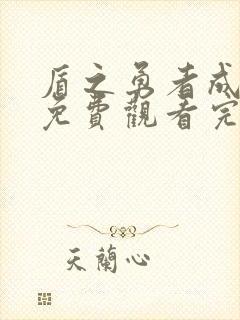 盾之勇者成
免費觀看完
天蘭心